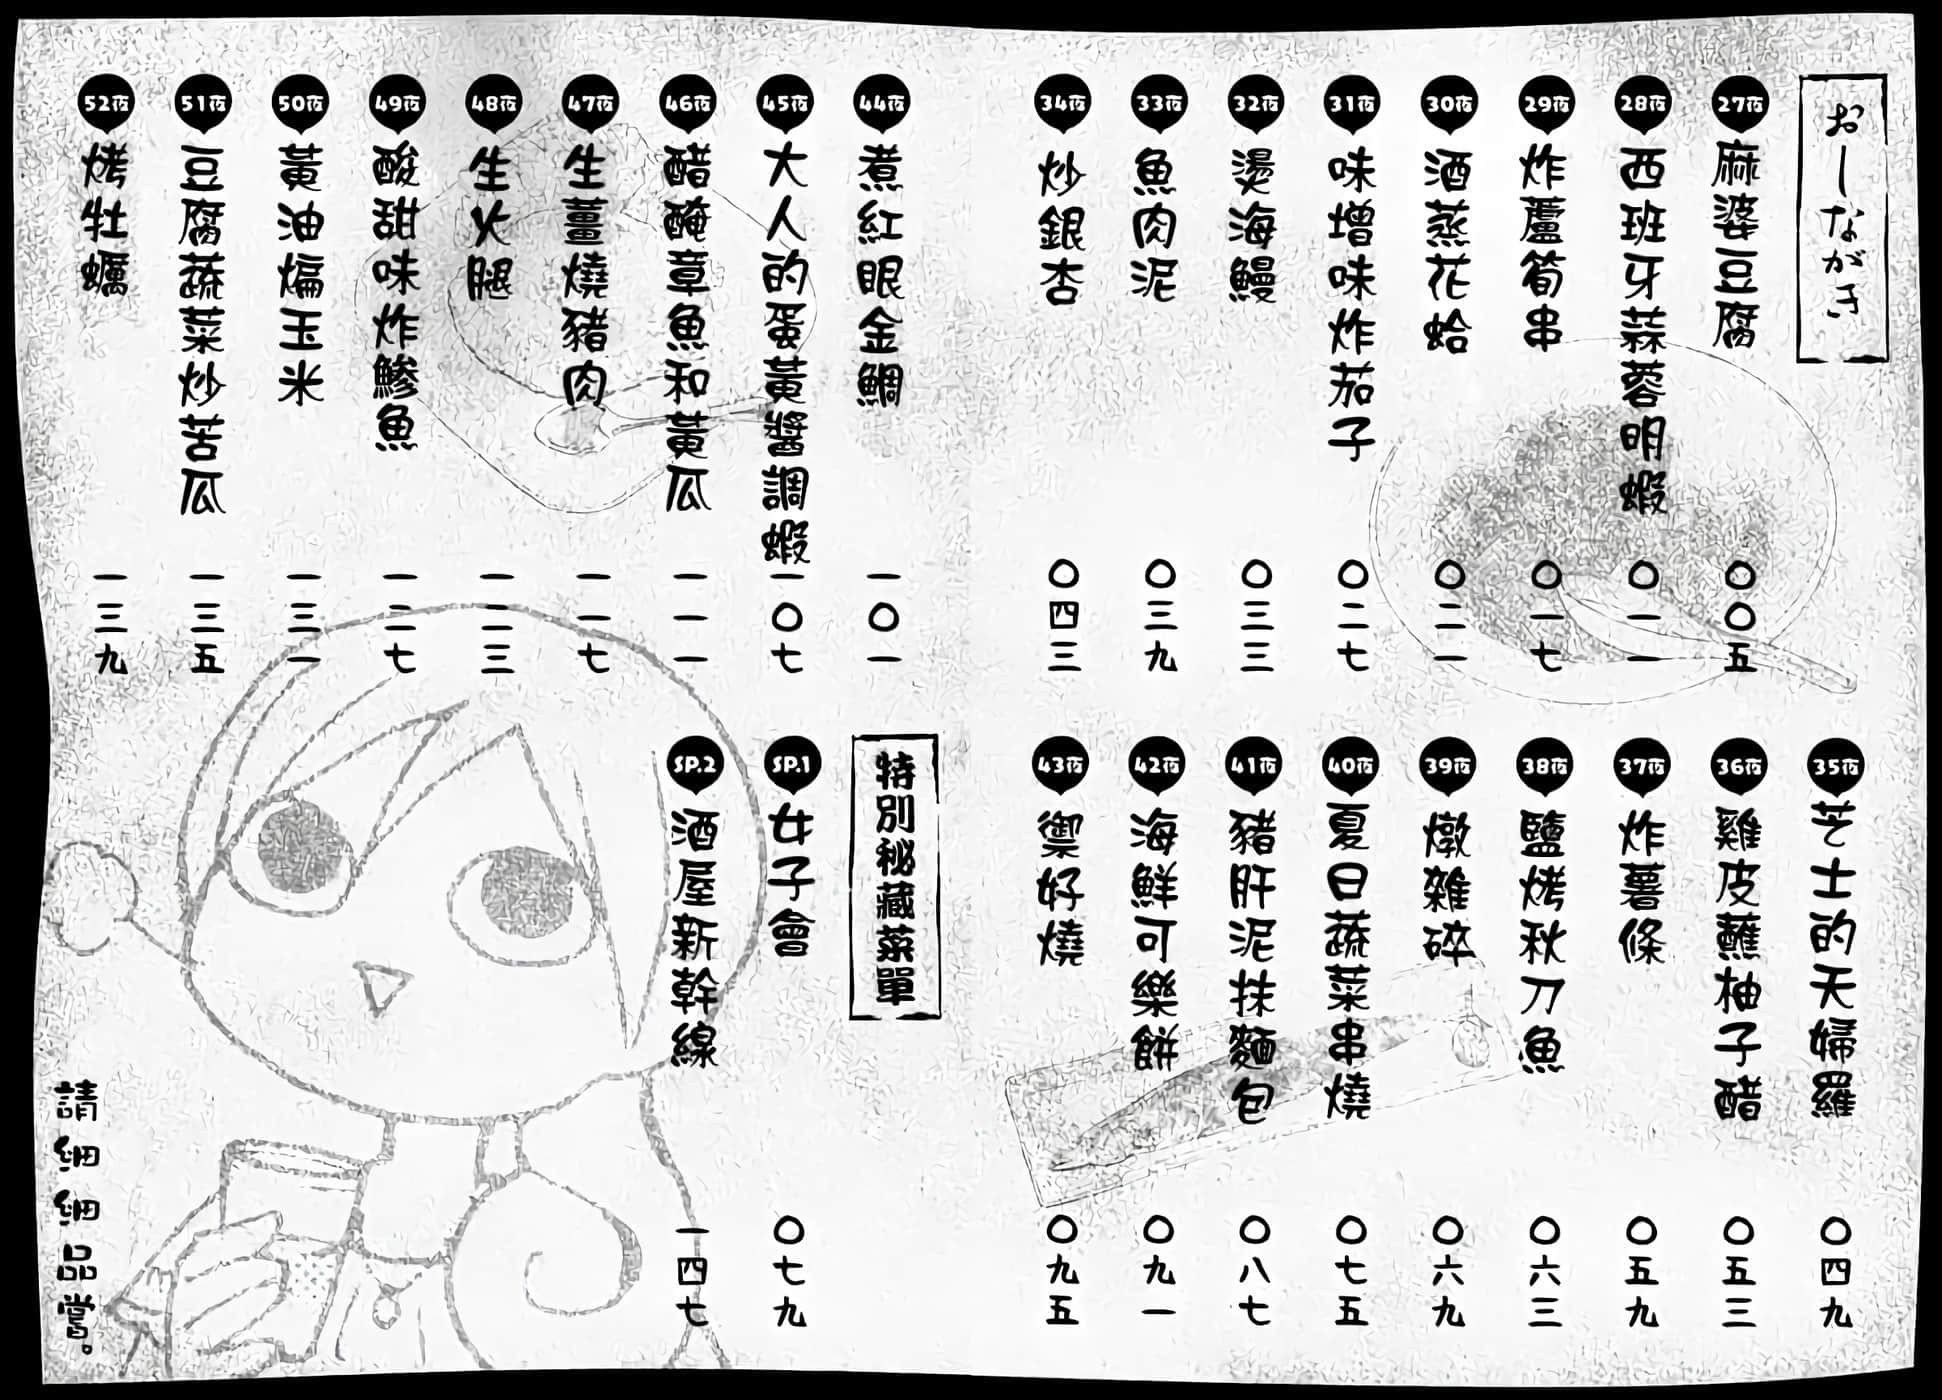 おーながき
27夜 麻婆豆腐 〇〇五
28夜 西班牙蒜蓉明蝦 〇一一
29夜 炸蘆筍串 〇一七
30夜 酒蒸花蛤 〇二一
31夜 味增味炸茄子 〇二七
32夜 燙海鰻 〇三三
33夜 魚肉泥 〇三九
34夜 炒銀杏 〇四三
35夜 芝士的天婦羅 〇四九
36夜 雞皮蘸柚子醋 〇五三
37夜 炸薯條 〇五九
38夜 鹽烤秋刀魚 〇六三
39夜 燉雜碎 〇六九
40夜 夏日蔬菜串燒 〇七五
41夜 豬肝泥抹麵包 〇八七
42夜 海鮮可樂餅 〇九一
43夜 禦好燒 〇九五
44夜 煮紅眼金鯛 一〇一
45夜 大人的蛋黃醬調蝦 一〇七
46夜 醋醃章魚和黃瓜 一一一
47夜 生薑燒豬肉 一一七
48夜 生火腿 一二三
49夜 酸甜味炸鰺魚 一二七
50夜 黃油煸玉米 一三一
51夜 豆腐蔬菜炒苦瓜 一三五
52夜 烤牡蠣 一三九
特別秘藏菜單
SP.1 女子會 〇七九
SP.2 酒屋新幹線 一四七
請細細品嘗。